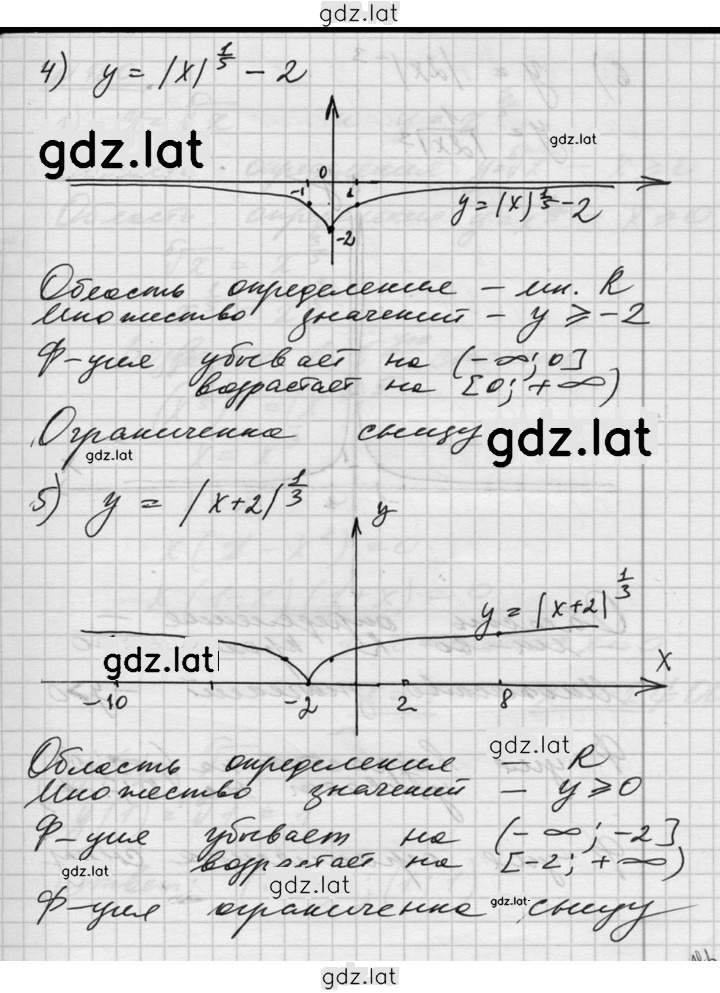 gdz.lat
4) y = |x|^{1/5} - 2
gdz.lat
gdz.lat
0
-1 1
y = |x|^{1/5} - 2
-2
Область определения – мн. R
Множество значений – y ⩾ -2
Ф-ция убывает на (-∞; 0]
возрастает на [0; +∞)
Ограниченна снизу
gdz.lat
gdz.lat
5) y = |x+2|^{1/3}
y
y = |x+2|^{1/3}
gdz.lat
x
-10 -2 2 8
gdz.lat
Область определения – R
Множество значений – y ⩾ 0
Ф-ция убывает на (-∞; -2]
возрастает на [-2; +∞)
gdz.lat
gdz.lat
Ф-ция ограниченна снизу
gdz.lat
gdz.lat